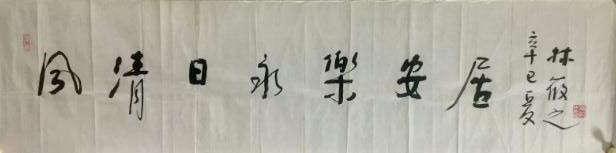 风清日永樂安居
辛巳夏
林筱之